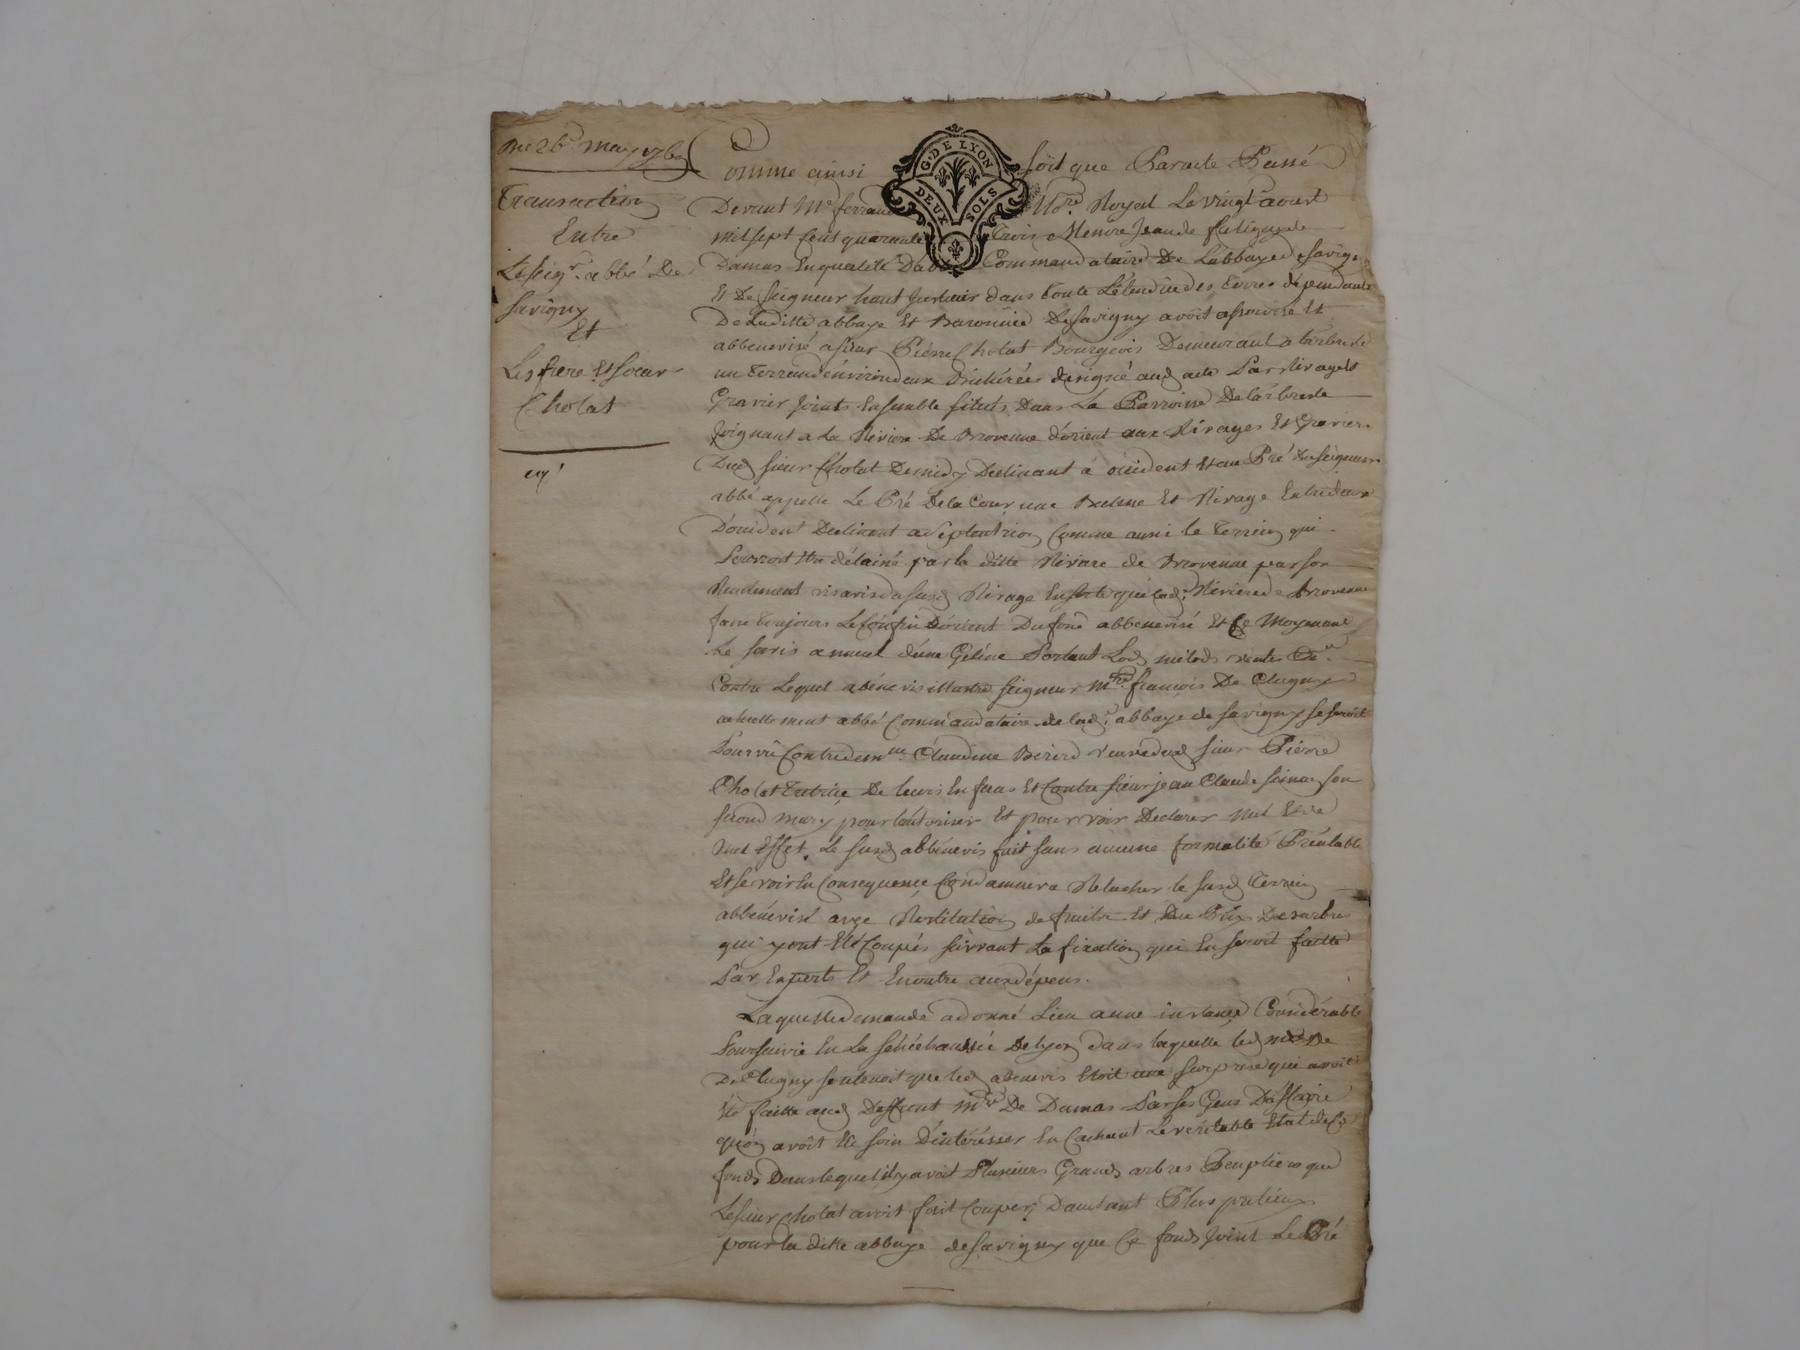 Du 26e may 176
Transaction
Entre
Le seigr. abbé De
Savigny
Et
Les frere Et soeur
Cholat
G. DE LYON
DEUX SOLS
Comme ainsi soit que Par acte Passé
Devant Me Royal Le vingt aoust
mil sept Cent quarante Trois Messire Jean de
Damas En qualité D'abbé Commandataire De L'abbaye de Savigny
Et De seigneur haut Justicier dans toute L'étendüe des terres dépendantes
De Laditte abbaye Et Baronnie De Savigny avoit asservisé Et
abbenevisé a sieur Pierre Cholat Bourgeois Demeurant a Larbresle
un Terrain d'environ deux Bicherées designé aud acte Par Rivages Et
Gravier Joints Ensemble situés Dans La Parroisse De Larbresle
Joignant a La Riviere De Brevenne d'orient aux Rivages Et Graviers
Dud sieur Cholat De midy Declinant a occident Et au Pré du seigneur
abbé appellé Le Pré De la Cour une Balme Et Rivage Entredeux
D'occident Declinant a septentrion Comme aussi le Terrein qui
Pourroit être délaissé par la ditte Riviere de Brevenne par son
vis a vis du susd Rivage En sorte que lad. Riviere de Brevenne
fasse toujours Le Confin D'orient Du fond abbenevisé Et Ce Moyenant
Le servis annuel d'une Géline Portant Lods milods ventes
Contre Lequel abénevis illustre seigneur Mre françois De Clugny
actuellement abbé Commandataire de lad. abbaye de Savigny se seroit
Pourvû Contre demlle Claudine Bererd veuve dud sieur Pierre
Cholat Tutrice De leurs Enfans Et Contre sieur jean Claude son
second mary pour l'autoriser Et pour voir Declarer nul Et de
nul Effet, Le susd abbénevis fait sans aucune formalité Préalable
Et se voir En Consequence Condamner a Relacher le susd Terrein
abbénevisé avec Restitution de fruits Et Du Prix Des arbres
qui y ont Eté Coupés suivant La fixation qui En seroit faitte
Par Experts Et En outre aux dépens.
Laquelle demande a donné Lieu a une instance Considérable
Poursuivie En La sénéchaussée De Lyon dans laquelle led
De Clugny soutenoit que led abenevis Etoit une surprise qui avoit
Eté faitte aud Deffunt Mre De Damas Par ses Gens D'affaire
qu'on avoit Eû soin D'intéresser En Cachant Le veritable Etat de Ce
fonds Dans lequel il y avoit Plusieurs Grands arbres Peupliers que
Le sieur Cholat avoit fait Couper, D'autant Plus pretieux
pour la ditte abbaye de Savigny que Ce fonds Joint Le Pré